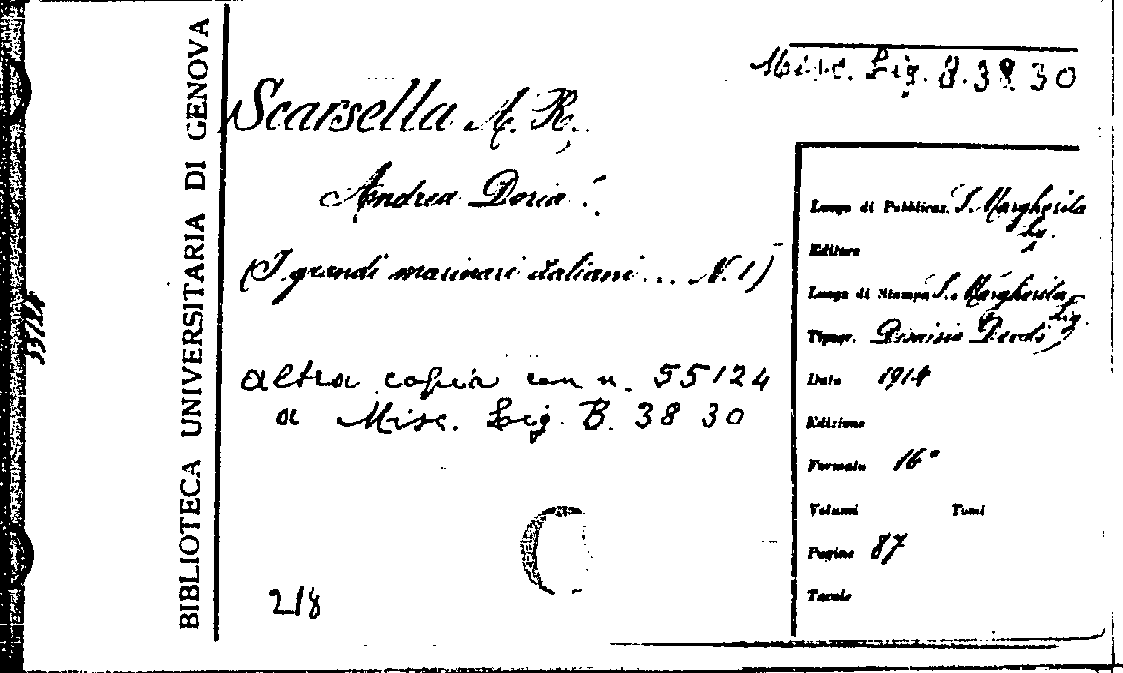 BIBLIOTECA UNIVERSITARIA DI GENOVA
Misc. Lig. B. 38. 30
Scarsella A. R.
Andrea Doria.
(I grandi marinari italiani... N. 1)
altra copia con n. 55124
a Misc. Lig. B. 38 30
218
Luogo di Pubblicaz. S. Margherita
Lig.
Editore
Luogo di Stampa S. Margherita
Lig.
Tipogr. Devoti
Data 1914
Edizione
Formato 16°
Volumi Tomi
Pagine 87
Tavole